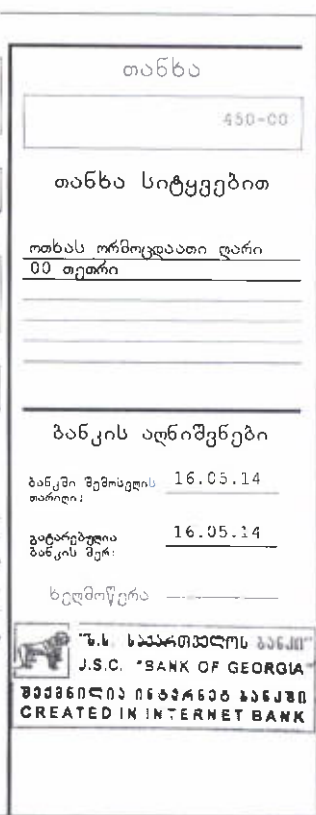 თანხა
450-00
თანხა სიტყვებით
ოთხას ორმოცდაათი ლარი
00 თეთრი
ბანკის აღნიშვნები
ბანკში შემოსვლის 16.05.14
თარიღი:
გატარებულია 16.05.14
ბანკის მერ:
ხელმოწერა
"ს.ს. საქართველოს ბანკი"
J.S.C. "BANK OF GEORGIA"
შექმნილია ინტერნეტ ბანკში
CREATED IN INTERNET BANK